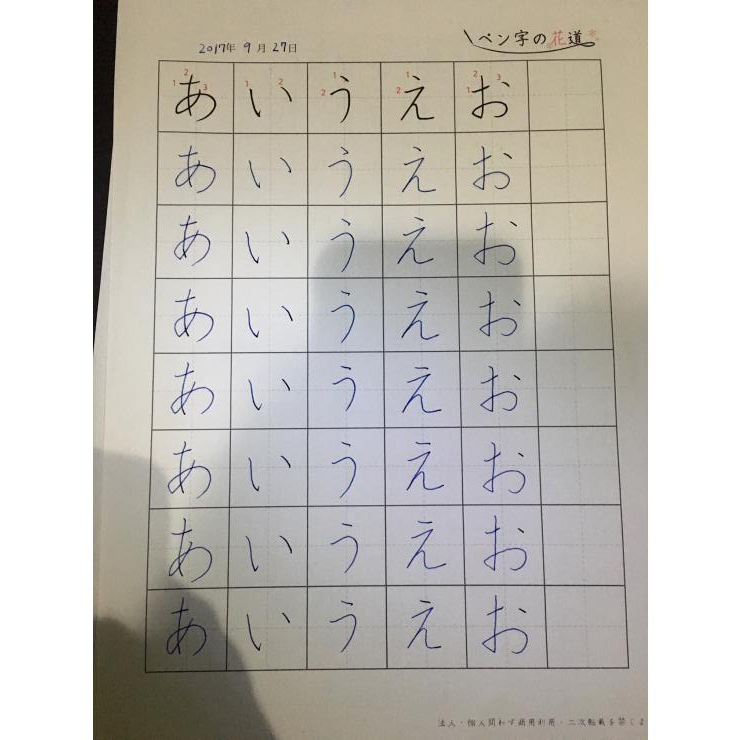 2017年 9月 27日
ペン字の花道
あ い う え お
あ い う え お
あ い う え お
あ い う え お
あ い う え お
あ い う え お
あ い う え お
あ い う え お
法人・個人問わず商用利用、二次転載を禁じま